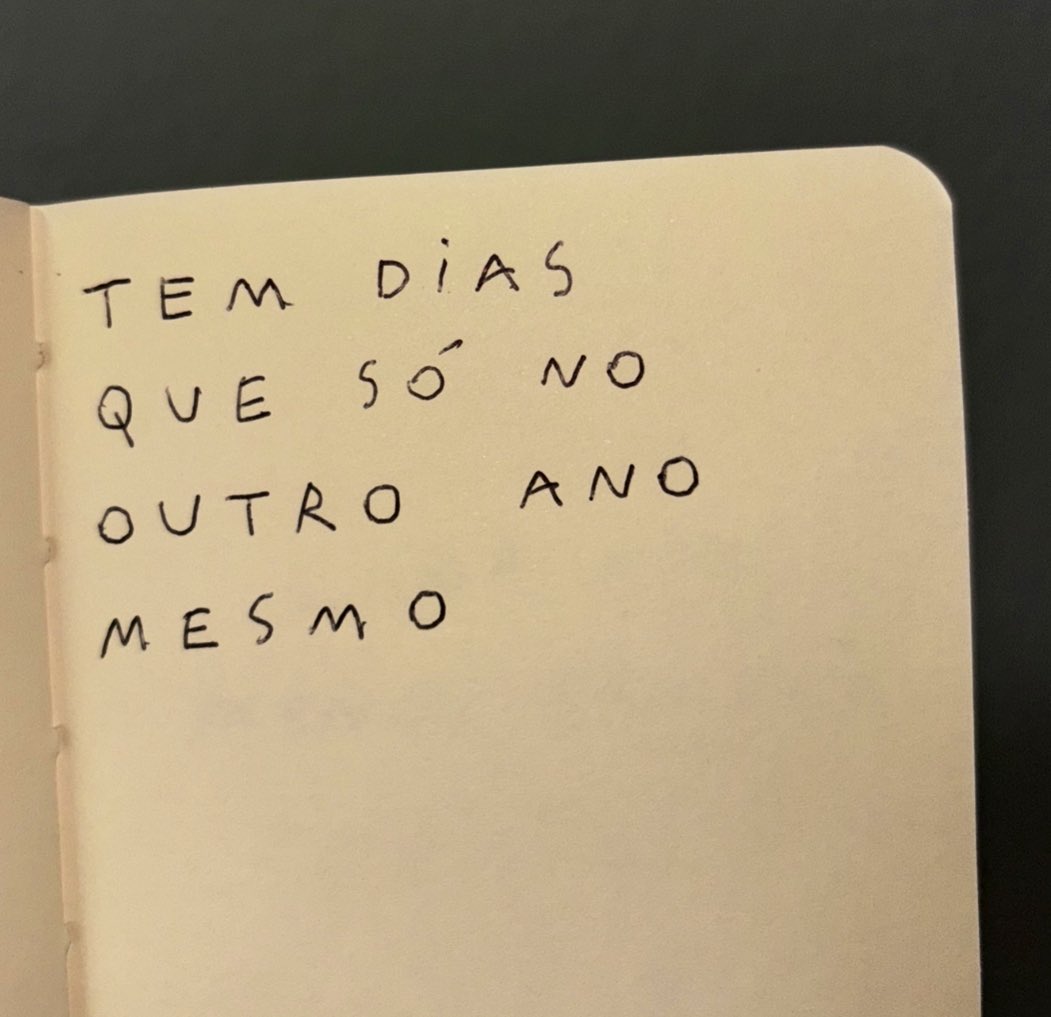 TEM DIAS
QUE SÓ NO
OUTRO ANO
MESMO